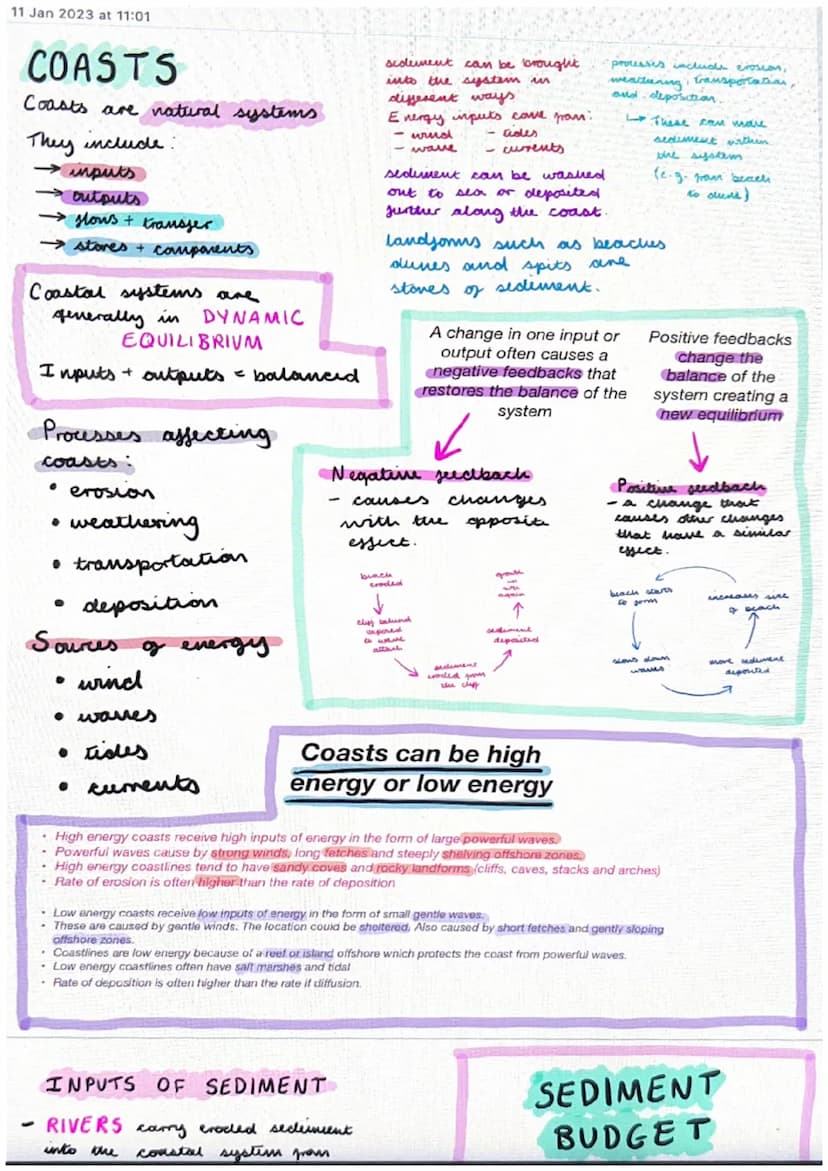 11 Jan 2023 at 11:01
COASTS
Coasts are natural systems
They include:
→ inputs
→ outputs
→ flows + transfer
→ stores + components
sediment can be brought
into the system in
different ways
Energy inputs come from:
- wind - tides
- wave - currents
sediment can be washed
out to sea or deposited
further along the coast.
landforms such as beaches
dunes and spits are
stores of sediment.
processes include erosion,
weathering, transportation,
and deposition.
↳ These can move
sediment within
the system
(e.g. from beach
to dune)
Coastal systems are
generally in DYNAMIC
EQUILIBRIUM
Inputs + outputs = balanced
A change in one input or
output often causes a
negative feedbacks that
restores the balance of the
system
Positive feedbacks
change the
balance of the
system creating a
new equilibrium
Negative feedback
- causes changes
with the opposite
effect.
beach
eroded
cliff behind
exposed
to wave
attack
sediment
eroded from
the cliff
sediment
deposited
growth
again
Positive feedback
- a change that
causes other changes
that have a similar
effect.
beach starts
to form
slows down
waves
more sediment
deposited
increases size
of beach
Processes affecting
coasts:
• erosion
• weathering
• transportation
• deposition
Sources of energy
• wind
• waves
• tides
• currents
Coasts can be high
energy or low energy
• High energy coasts receive high inputs of energy in the form of large powerful waves.
• Powerful waves cause by strong winds, long fetches and steeply shelving offshore zones.
• High energy coastlines tend to have sandy coves and rocky landforms (cliffs, caves, stacks and arches)
• Rate of erosion is often higher than the rate of deposition
• Low energy coasts receive low inputs of energy in the form of small gentle waves.
• These are caused by gentle winds. The location could be sheltered. Also caused by short fetches and gently sloping
offshore zones.
• Coastlines are low energy because of a reef or island offshore which protects the coast from powerful waves.
• Low energy coastlines often have salt marshes and tidal
• Rate of deposition is often higher than the rate if diffusion.
INPUTS OF SEDIMENT
- RIVERS carry eroded sediment
into the coastal system from
SEDIMENT
BUDGET